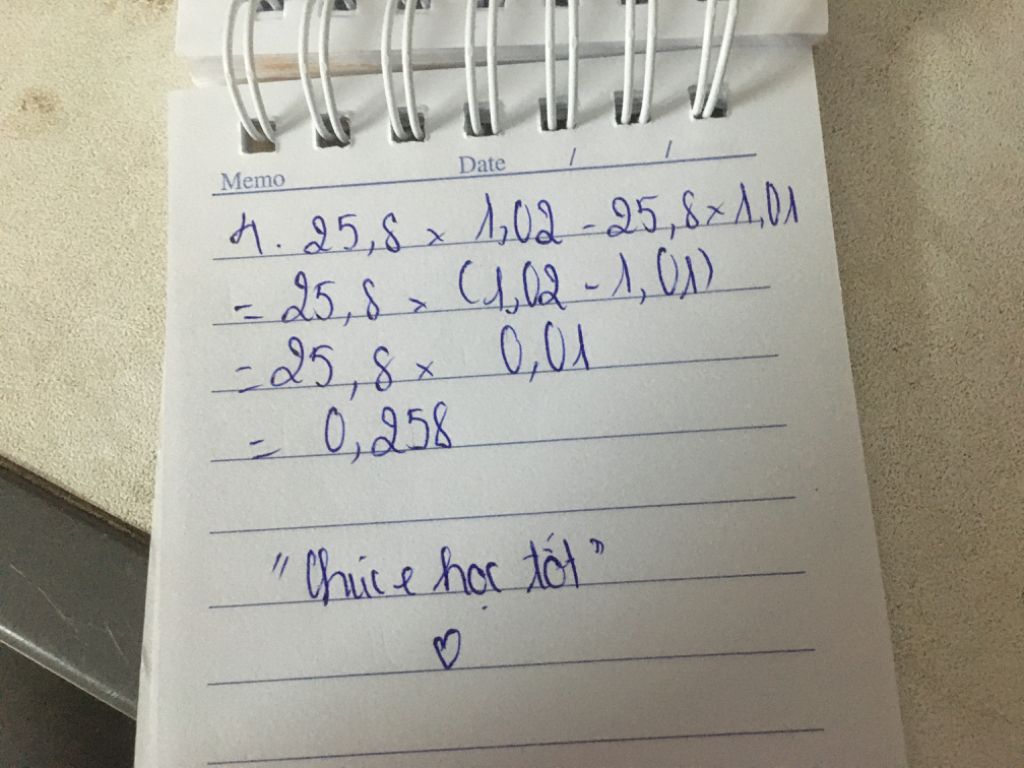 Memo Date / /
4. 25,8 × 1,02 - 25,8 × 1,01
= 25,8 × (1,02 - 1,01)
= 25,8 × 0,01
= 0,258
"Chúc e học tốt"
♡